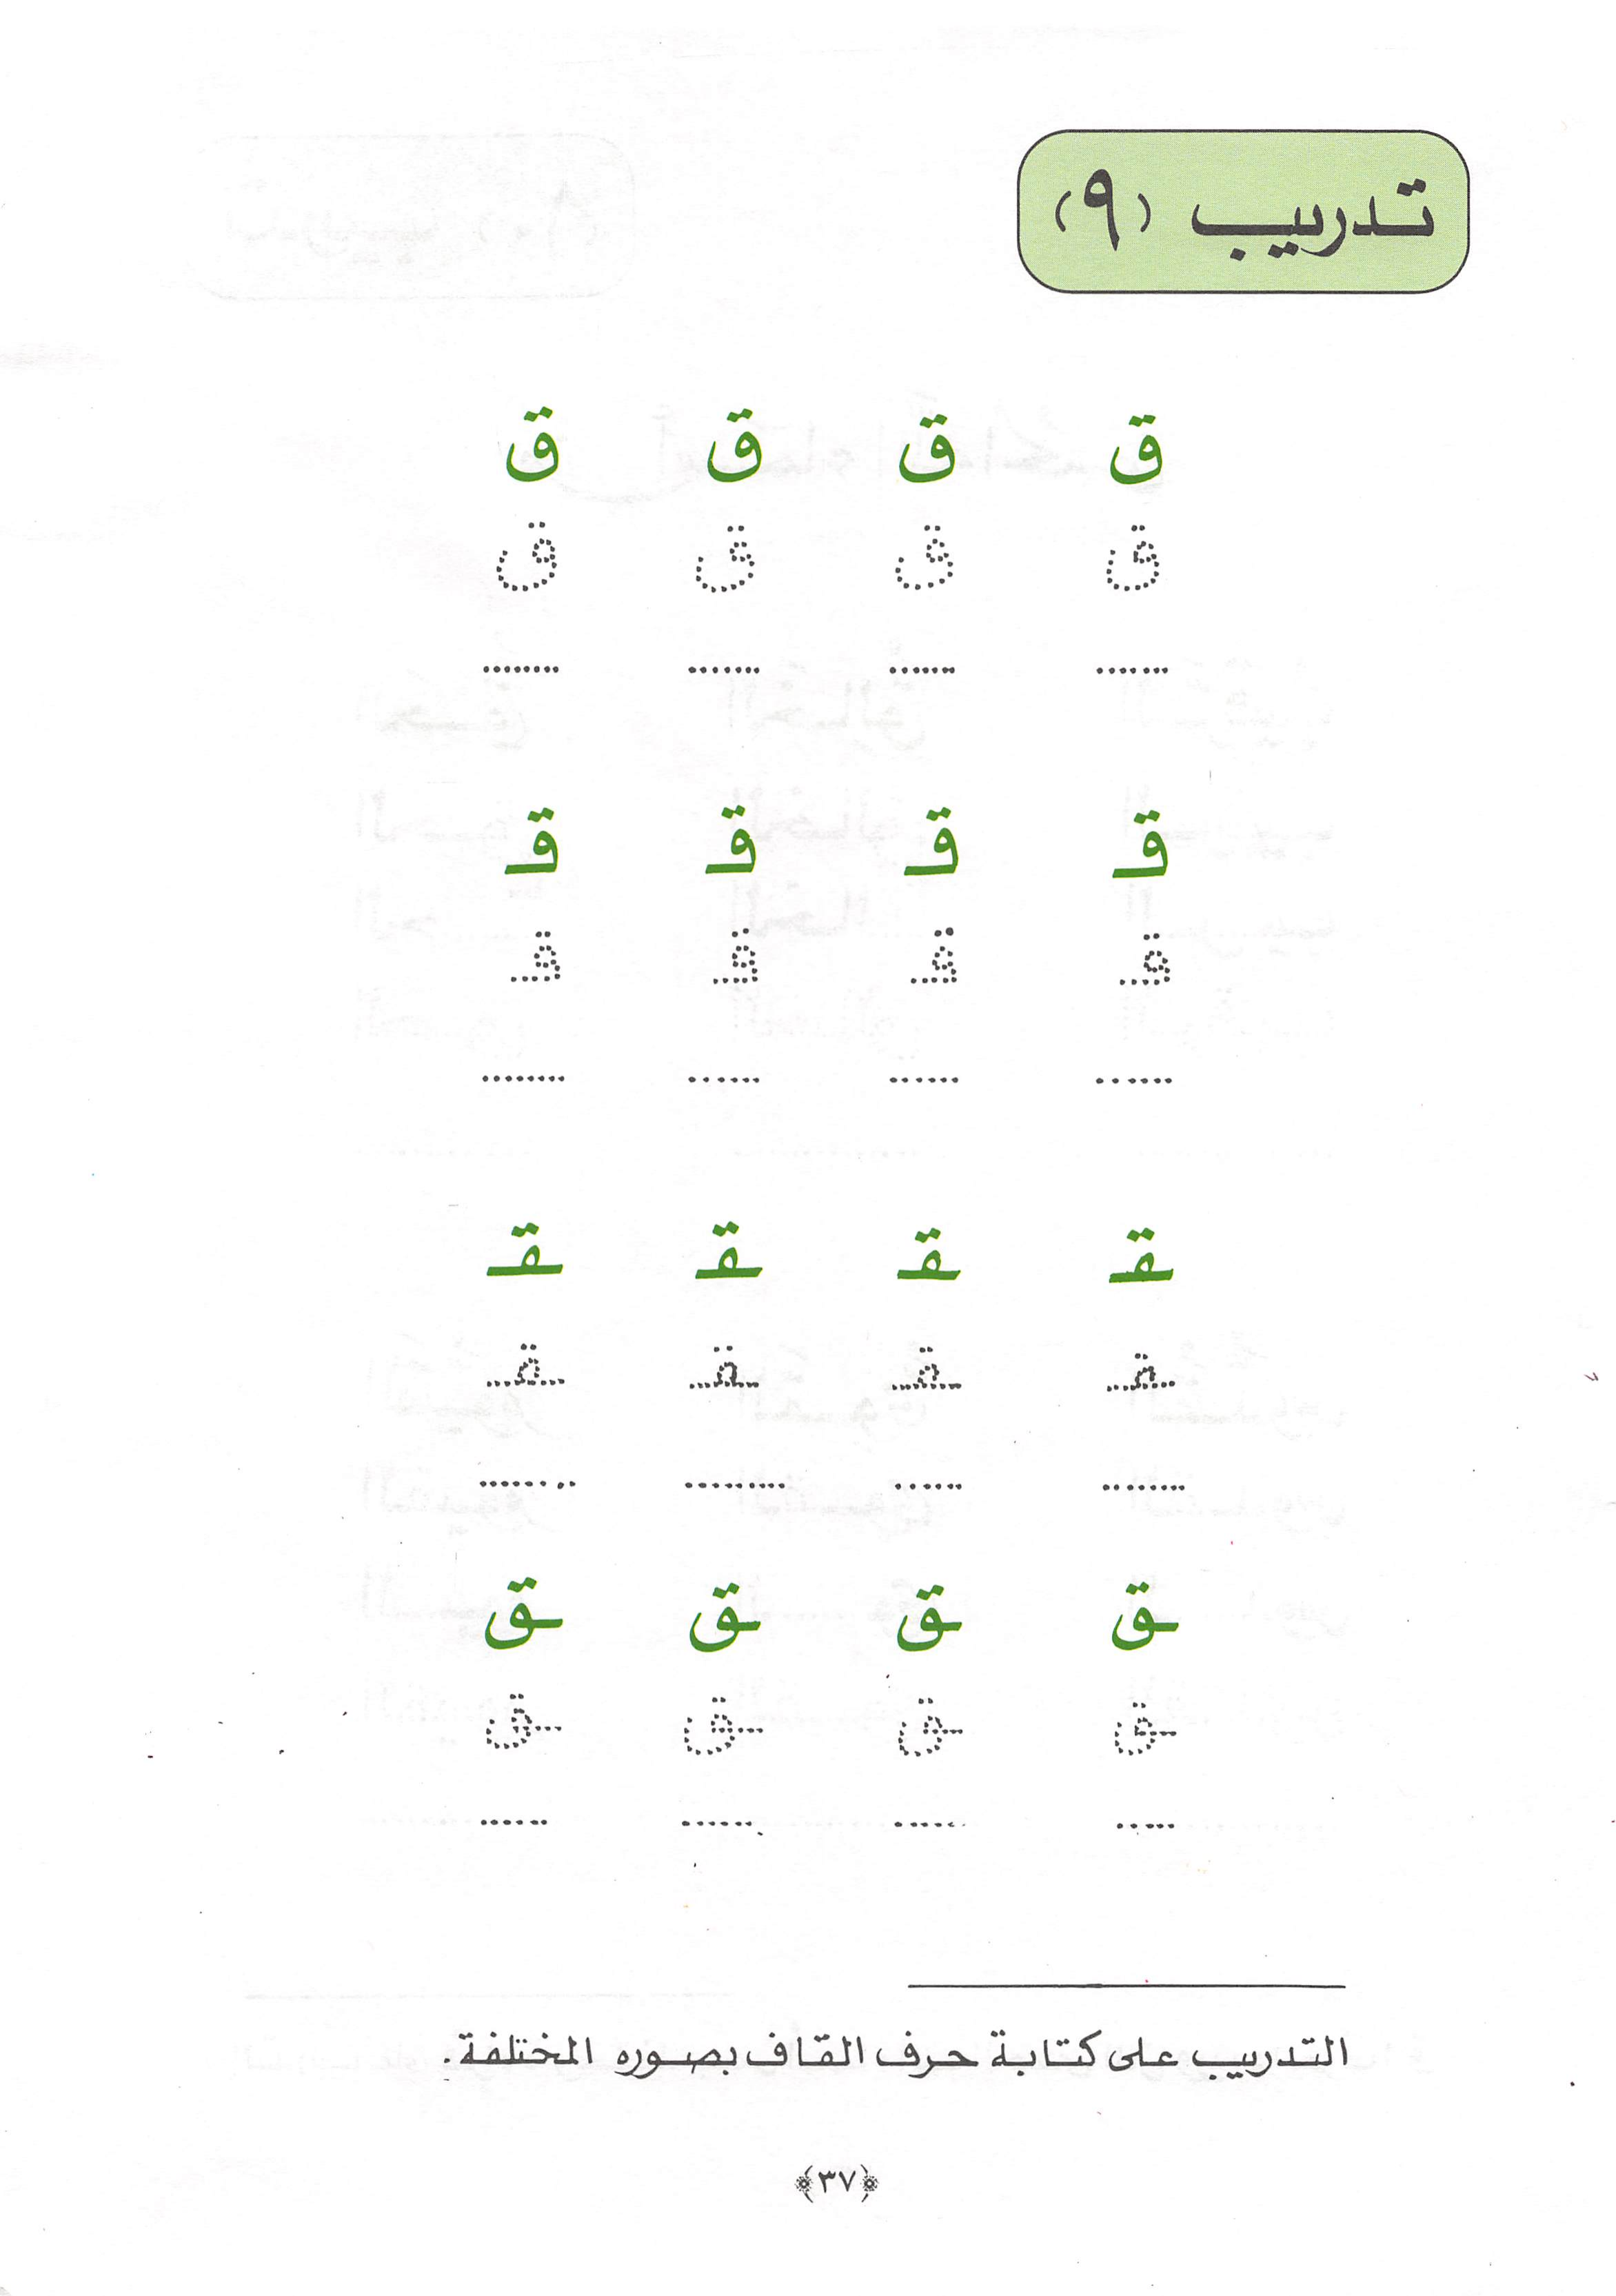 تدريب (٩)
ق ق ق ق
ق ق ق ق
........ ....... ...... .......
قـ قـ قـ قـ
قـ قـ قـ قـ
....... ...... ...... ........
ـقـ ـقـ ـقـ ـقـ
ـقـ ـقـ ـقـ ـقـ
........ ...... ......... ........
ـق ـق ـق ـق
ـق ـق ـق ـق
...... ...... ...... ......
التدريب على كتابة حرف القاف بصوره المختلفة.
﴿٣٧﴾